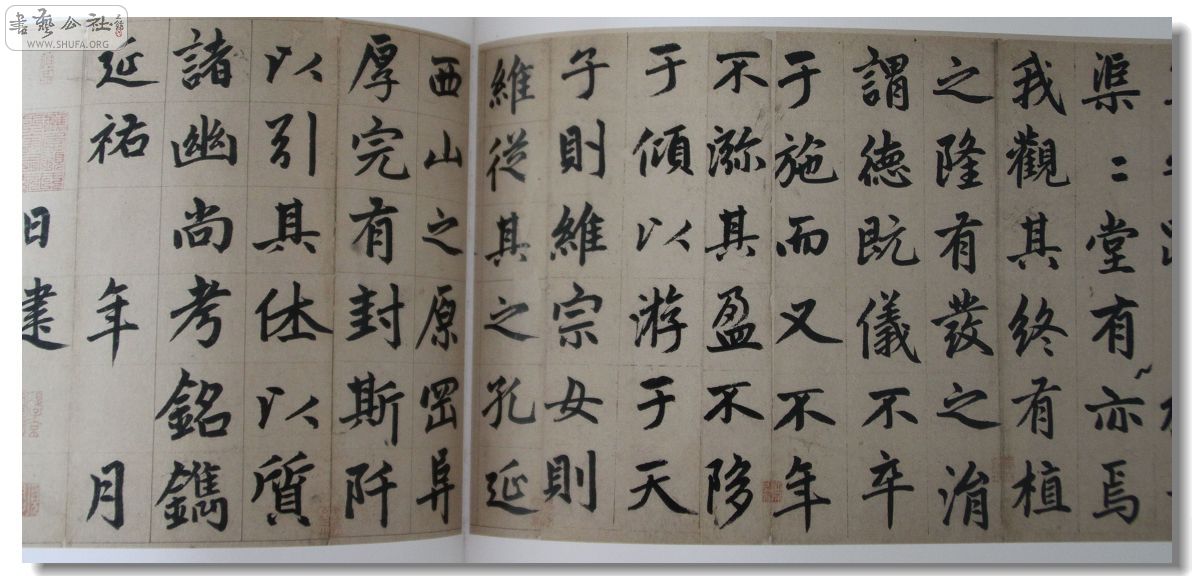 書藝公社
WWW.SHUFA.ORG
渠〻堂有亦焉
我觀其終有植
之隆有發之
謂德既儀不卒
于施而又不年
不㳽其盈不陊
于傾以游于天
子則維宗女則
維從其之孔延
西山之原岡阜
厚完有封斯阡
以引其休以質
諸幽尚考銘鐫
延祐 年 月
日建